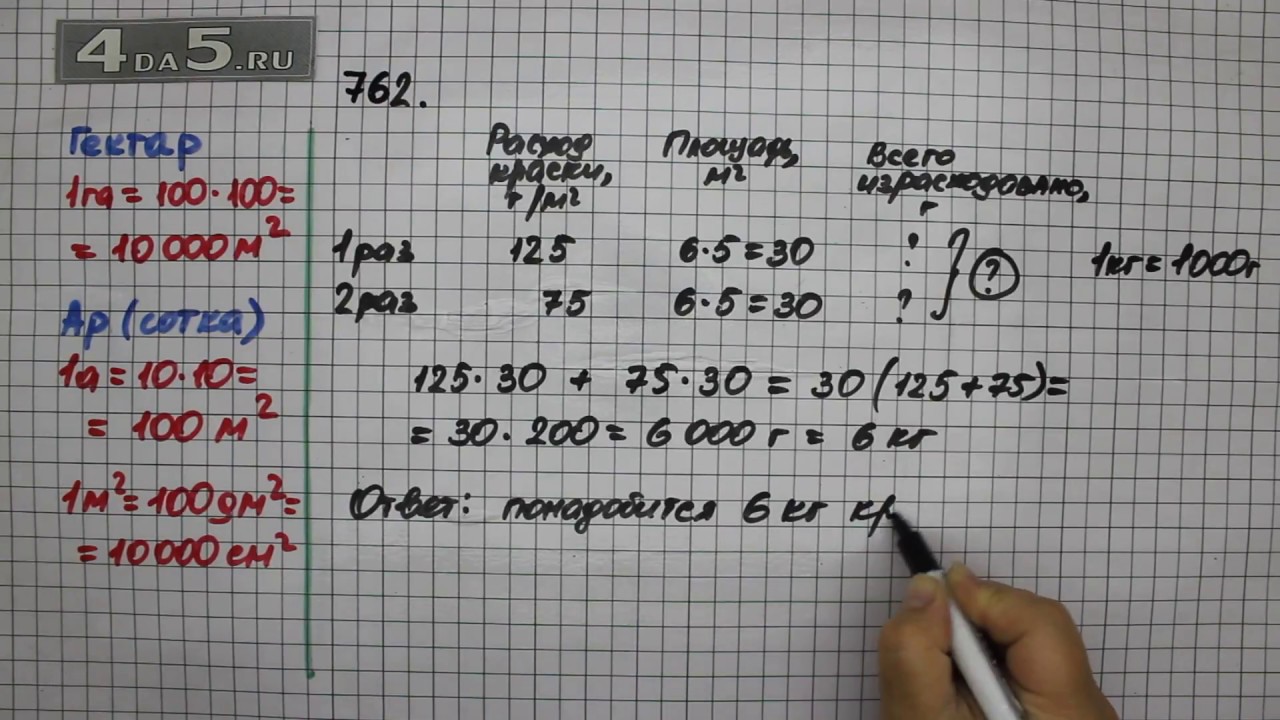 4DA5.RU
762.
Гектар
1га = 100·100=
= 10 000 м²
Ар (сотка)
1а = 10·10=
= 100 м²
1м² = 100дм² =
= 10 000 см²
Расход краски, г/м² Площадь, м² Всего израсходовано, г
1 раз 125 6·5=30 ?
2 раз 75 6·5=30 ?
?
1кг = 1000г
125·30 + 75·30 = 30(125+75)=
= 30·200 = 6 000 г = 6 кг
Ответ: понадобится 6 кг кр